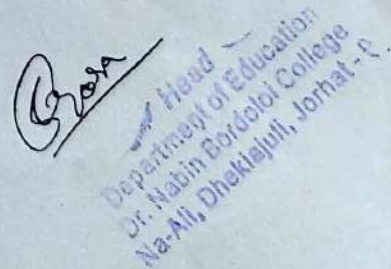 Head
Department of Education
Dr. Nabin Bordoloi College
Na-Ali, Dhekiajuli, Jorhat-